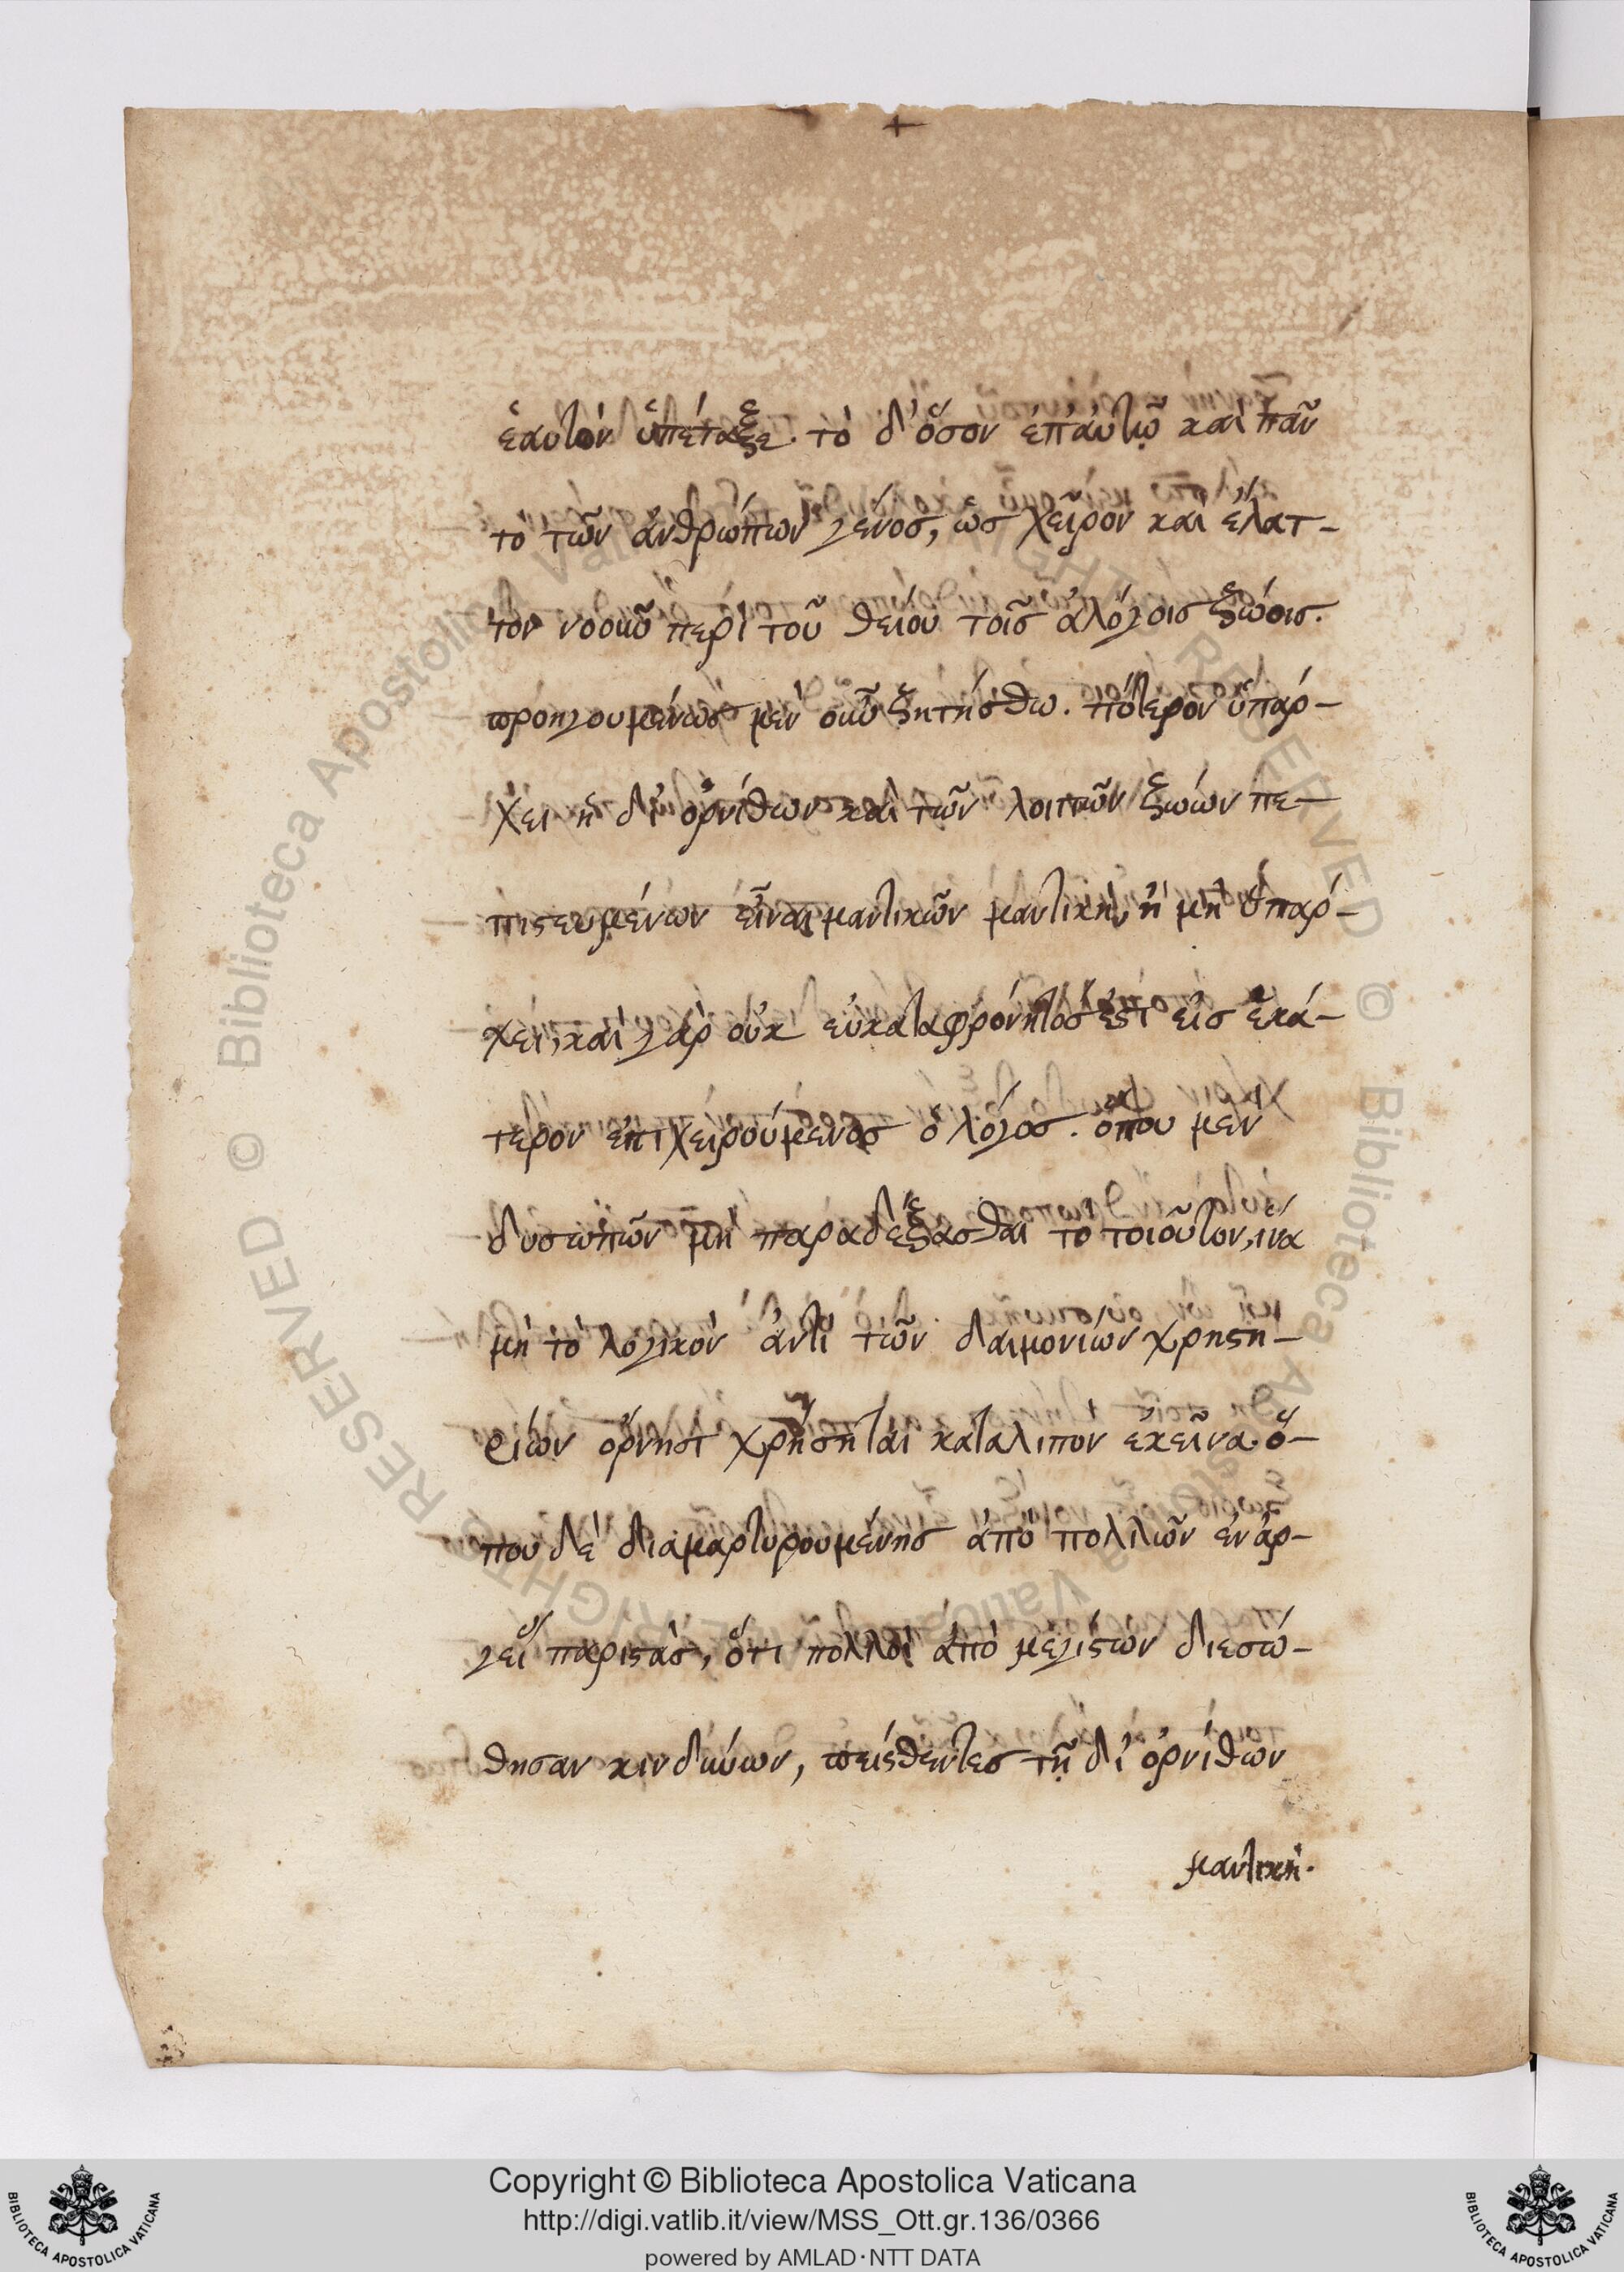 +
ἑαυτὸν ὑπέταξε. τὸ δ' ὅσον ἐπ' αὐτῷ καὶ πᾶν
τὸ τῶν ἀνθρώπων γένος, ὡς χεῖρον καὶ ἔλατ-
τον νοοῦν περὶ τοῦ θείου τοῖς ἀλόγοις ζώοις.
προηγουμένως μὲν οὖν ζητήσθω. πότερον ὑπάρ-
χει ἡ δι' ὀρνίθων καὶ τῶν λοιπῶν ζώων πε-
πιστευμένων εἶναι μαντικῶν μαντικὴ, ἢ μὴ ὑπάρ-
χει, καὶ γὰρ οὐκ εὐκαταφρόνητός ἐστ' εἰς ἑκά-
τερον ἐπιχειρούμενος ὁ λόγος. ὅπου μὲν
δυσωπῶν μὴ παραδέξασθαι τὸ τοιοῦτον, ἵνα
μὴ τὸ λογικὸν ἀντὶ τῶν δαιμονίων χρηστη-
ρίων ὄρνησι χρήσηται καταλιπὸν ἐκεῖνα. ὅ-
που δὲ διαμαρτυρουμένης ἀπὸ πολλῶν ἐνάρ-
γει παριστὰς, ὅτι πολλοὶ ἀπὸ μεγίστων διεσώ-
θησαν κινδύνων, πεισθέντες τῇ δι' ὀρνίθων
μαντικὴ.
Copyright © Biblioteca Apostolica Vaticana
http://digi.vatlib.it/view/MSS_Ott.gr.136/0366
powered by AMLAD·NTT DATA
BIBLIOTECA APOSTOLICA VATICANA
BIBLIOTECA APOSTOLICA VATICANA